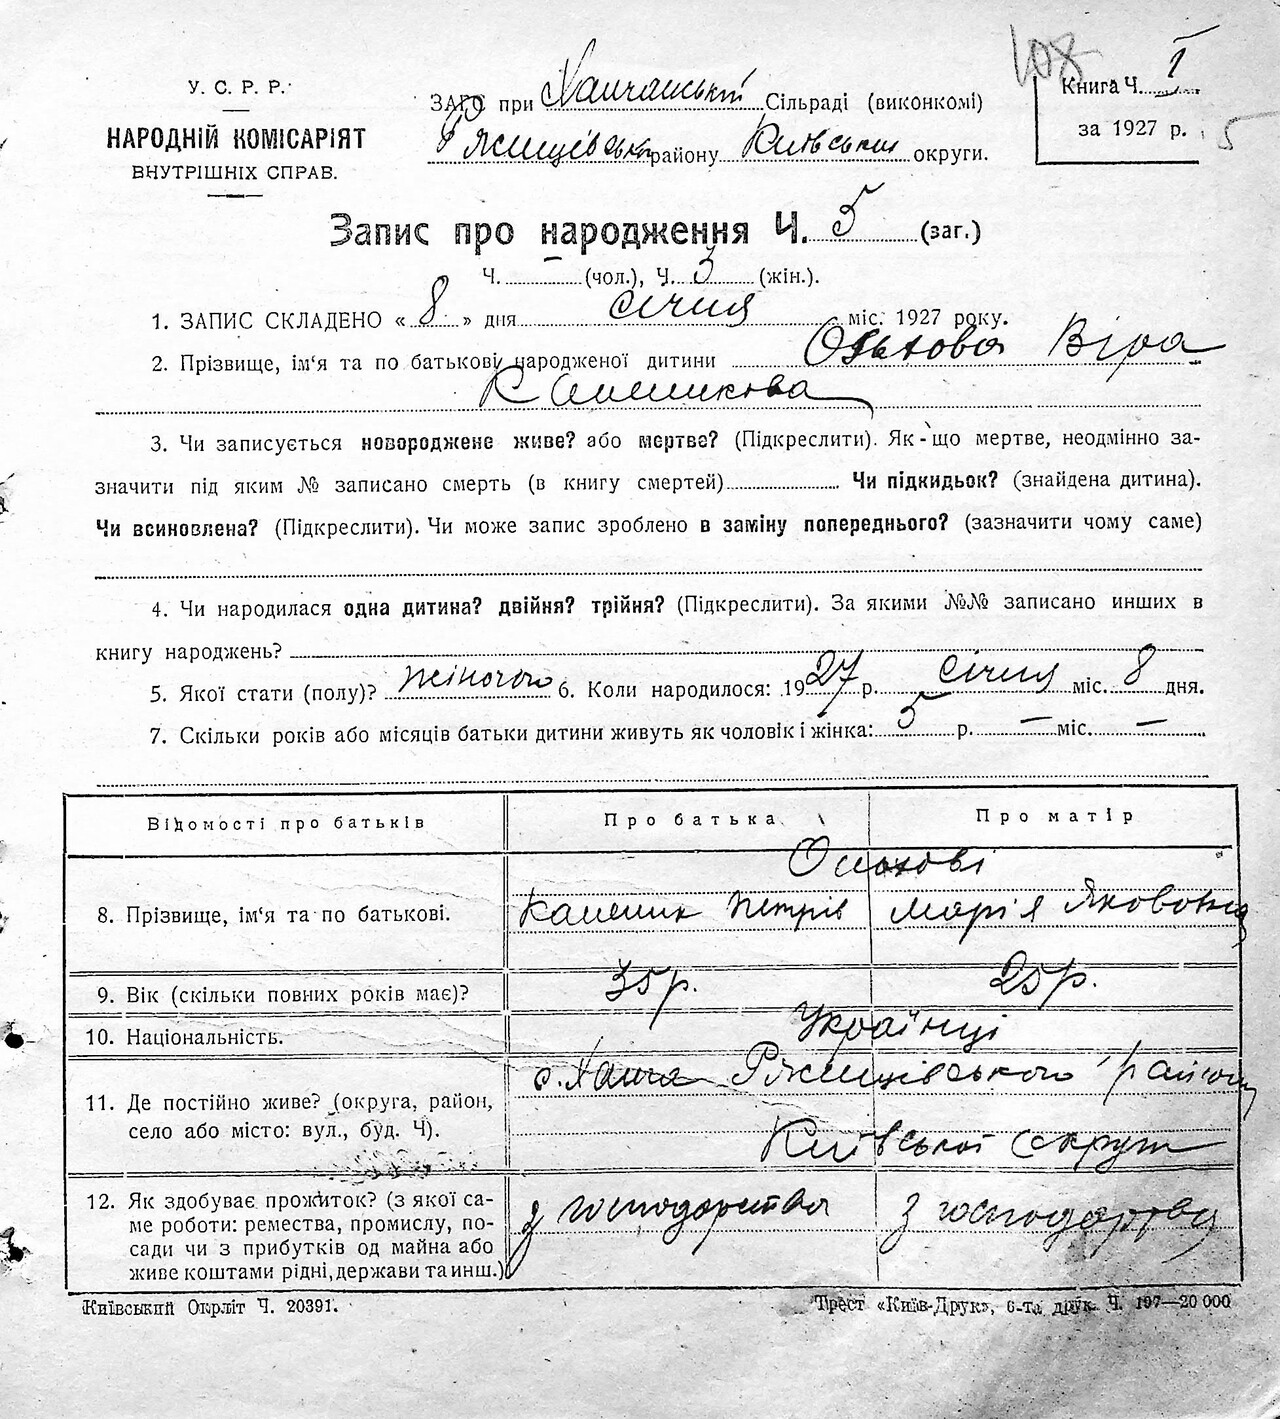 108
У. С. Р. Р.
НАРОДНІЙ КОМІСАРІЯТ
ВНУТРІШНІХ СПРАВ.
ЗАГС при Сільраді (виконкомі)
району Київськии округи.
Книга Ч. I
за 1927 р. 5
Запис про народження Ч. 5 (заг.)
Ч. – (чол.), Ч. 3 (жін.).
1. ЗАПИС СКЛАДЕНО « 8 » дня січня міс. 1927 року.
2. Прізвище, ім'я та по батькові народженої дитини Віра
3. Чи записується новороджене живе? або мертве? (Підкреслити). Як-що мертве, неодмінно за-
значити під яким № записано смерть (в книгу смертей) Чи підкидьок? (знайдена дитина).
Чи всиновлена? (Підкреслити). Чи може запис зроблено в заміну попереднього? (зазначити чому саме)
4. Чи народилася одна дитина? двійня? трійня? (Підкреслити). За якими №№ записано инших в
книгу народжень?
5. Якої стати (полу)? жіночого 6. Коли народилося: 1927 р. січня міс. 8 дня.
7. Скільки років або місяців батьки дитини живуть як чоловік і жінка: 5 р. – міс. –
Відомості про батьків Про батька Про матір
8. Прізвище, ім'я та по батькові. Каленик Петрів Марія Якововна
9. Вік (скільки повних років має)? 35 р. 25 р.
10. Національність. Українці
11. Де постійно живе? (округа, район, с. Ржищівського району
село або місто: вул., буд. Ч). Київської округи
12. Як здобуває прожиток? (з якої са- з господарства з господарства
ме роботи: ремества, промислу, по-
сади чи з прибутків од майна або
живе коштами рідні, держави та инш.)
Київський Окрліт Ч. 20391. Трест «Київ-Друк», 6-та друк. Ч. 197—20 000